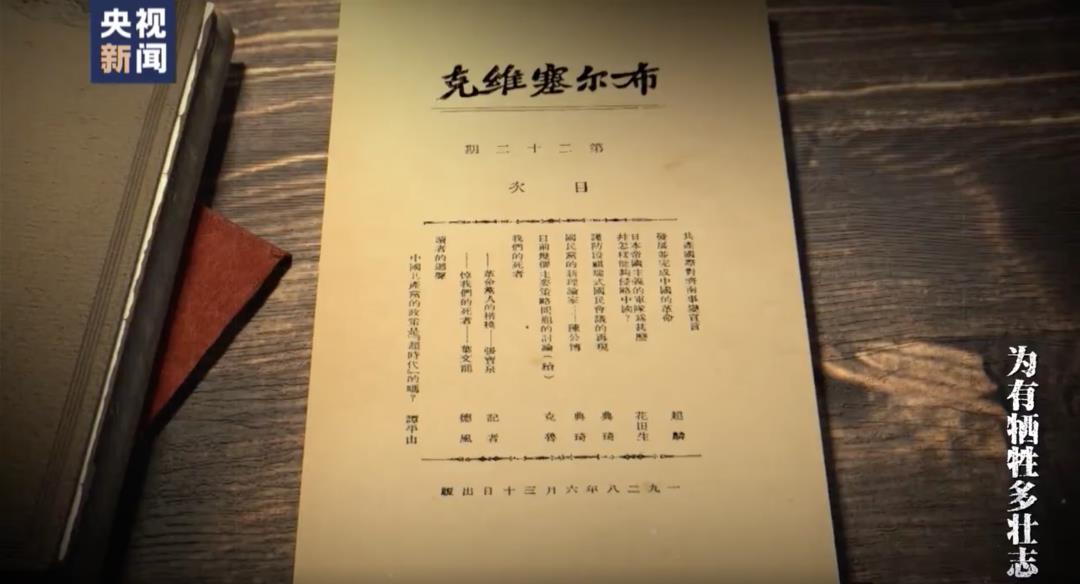 央视
新闻
布尔塞維克
第二十二期
目次
共產國際對濟南事變宣言
發展並完成中國的革命 超麟
日本帝國主義的軍隊爲甚麼
幷怎樣能夠侵略中國？ 花田生
謹防段祺瑞式國民會議的再現 典琦
國民黨的新理論家——陳公博 典琦
目前主要策略問題的討論（續） 克魯
我們的死者
——革命黨人的榜樣——張寶泉 記者
——悼我們的死者——葉文龍 德風
讀者的迴聲
中國共產黨的政策是『超時代』的嗎？ 譚平山
一九二八年六月三十日出版
为有牺牲多壮志